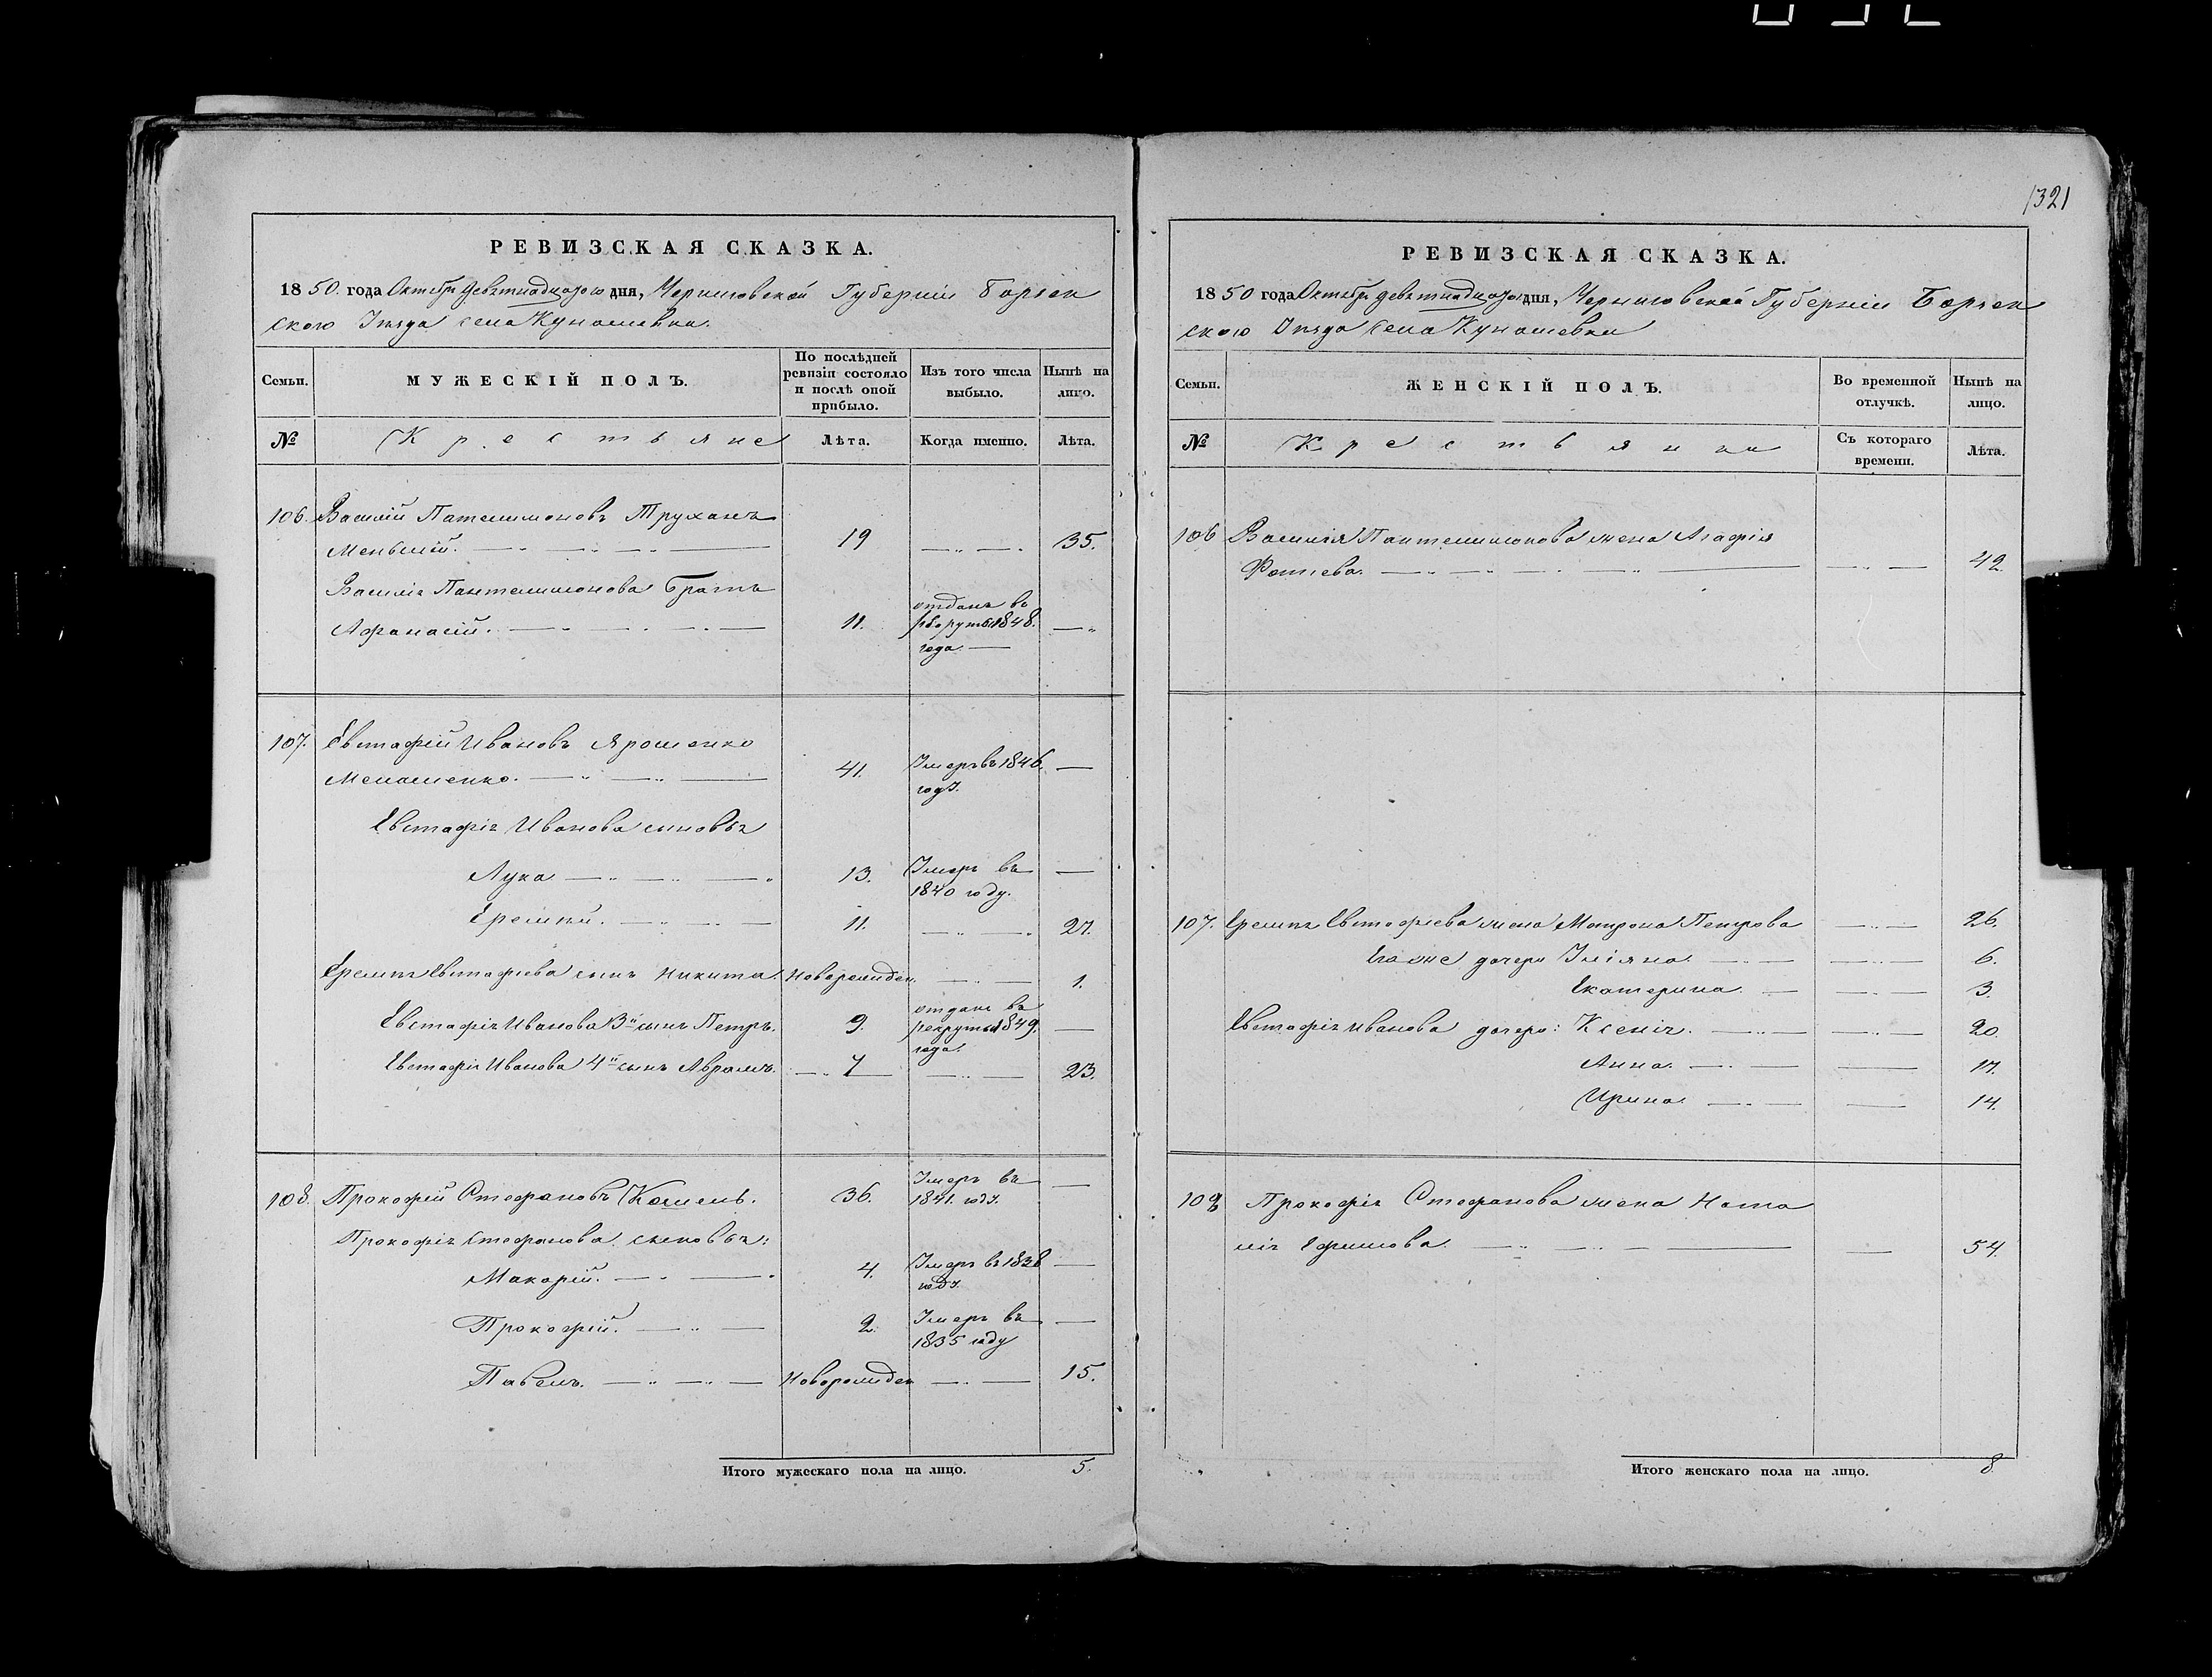 1321
РЕВИЗСКАЯ СКАЗКА.
1850. года Октября девятнадцатого дня, Черниговской Губернии Борзен
ского Уезда села Кунашевки.
Семьи.
МУЖЕСКІЙ ПОЛЪ.
По послѣдней ревизіи состояло и послѣ оной прибыло.
Изъ того числа выбыло.
Нынѣ на лицо.
№
Крестьяне
Лѣта.
Когда именно.
Лѣта.
106. Василій Пателимоновъ Труханъ
Меньшій. 19 35.
Василія Пантелимонова Братъ
Афанасій. 11. отданъ въ рекруты 1848. года.
107. Евстафій Ивановъ Ярошенко
Менашенко. 41. Умеръ въ 1846. годѣ.
Евстафія Иванова сыновья
Лука 13. Умеръ въ 1840 году.
Еремѣй. 11. 27.
Еремѣя Евстафіева сынъ Никита. Новорожден. 1.
Евстафія Иванова 3й сынъ Петръ. 9. отданъ въ рекруты 1849. года.
Евстафія Иванова 4й сынъ Аврамъ. 7 23.
108. Прокофій Стефановъ Кошель. 36. Умеръ въ 1841. годѣ.
Прокофія Стефанова сыновья:
Макарій. 4. Умеръ въ 1838 годѣ.
Прокофій. 2. Умеръ въ 1835 году
Павелъ. Новорожден 15.
Итого мужескаго пола на лицо. 5.
РЕВИЗСКАЯ СКАЗКА.
1850 года Октября девятнадцатого дня, Черниговской Губерніи Борзен
ского Уезда села Кунашевки
Семьи.
ЖЕНСКІЙ ПОЛЪ.
Во временной отлучкѣ.
Нынѣ на лицо.
№
Крестьянки
Съ котораго времени.
Лѣта.
106 Василія Пантелимонова жена Агафія
Фотіева. 42.
107. Еремѣя Евстафіева жена Матрона Петрова 26.
Его же дочери Уліяна. 6.
Екатерина. 3.
Евстафія Иванова дочери: Ксенія. 20.
Анна. 17.
Ирина. 14.
108 Прокофія Стефанова жена Ната
лія Ефимова. 54.
Итого женскаго пола на лицо. 8